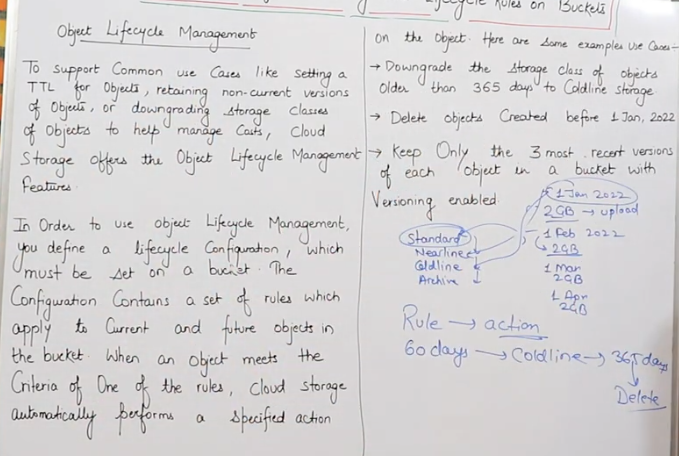 Lifecycle Rules on Buckets
Object Lifecycle Management
To support Common use Cases like setting a
TTL for Objects, retaining non-current versions
of Objects, or downgrading storage Classes
of Objects to help manage Costs, Cloud
Storage offers the Object Lifecycle Management
Features.
In Order to use object Lifecycle Management,
you define a lifecycle Configuration, which
must be set on a bucket. The
Configuration Contains a set of rules which
apply to Current and future objects in
the bucket. When an object meets the
Criteria of One of the rules, Cloud storage
automatically performs a specified action
on the Object. Here are some examples use Cases-
→ Downgrade the storage class of objects
Older than 365 days to Coldline storage
→ Delete objects Created before 1 Jan, 2022
→ Keep Only the 3 most recent versions
of each object in a bucket with
Versioning enabled.
Standard
Nearline
Coldline
Archive
1 Jan 2022
2GB → upload
1 Feb 2022
2GB
1 Mar
2GB
1 Apr
2GB
Rule → action
60 days → Coldline → 365 days
Delete